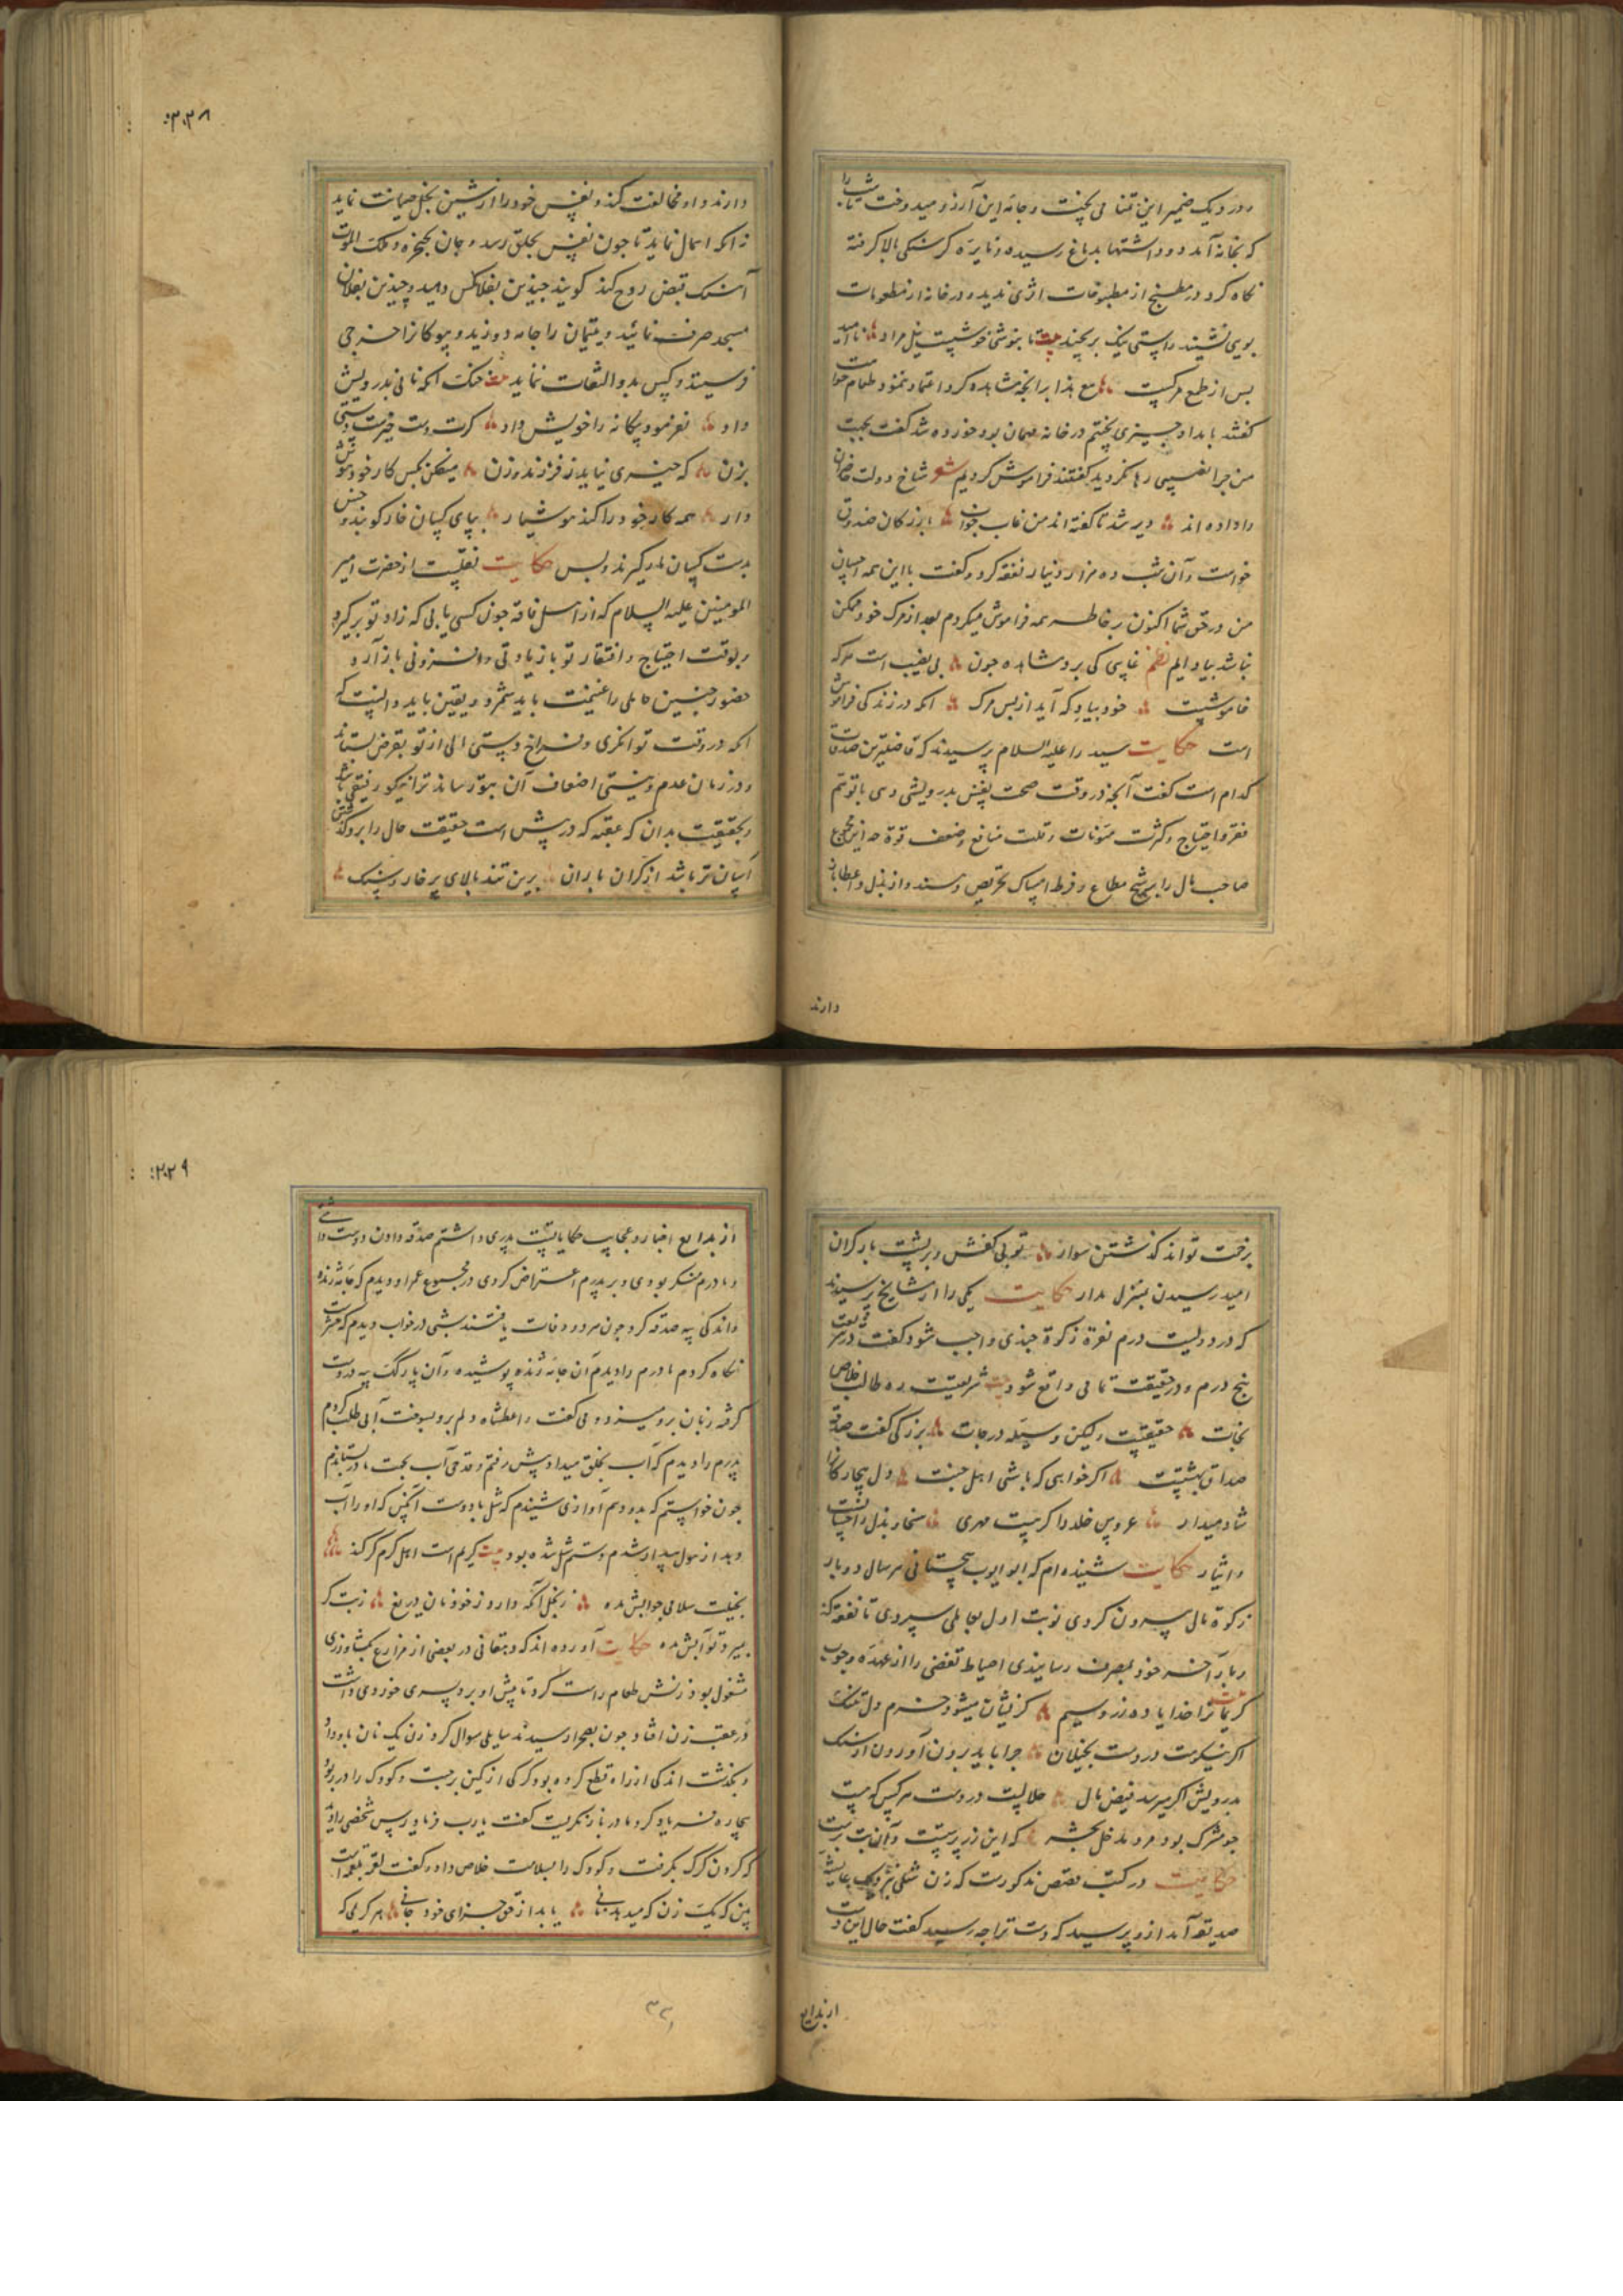 ودر دیک ضمیر این تمنا می پخت و جامه این آرزو میدوخت شب را
که بخانه آمد دود اشتها بدماغ رسیده و نایره کرسنکی بالا کرفته
نکاه کرد در مطبخ از مطبوخات اثری ندید و در خانه از مطعومات
بویی نشنید
بس از طمع مرکیست مع هذا برانچه مشاهده کرد اعتماد ننمود و طعام خواست
کفتند بامداد چیزی پختیم در خانه مهمان بود خورده شد کفت بجهت
من چرا نصیبی رها نکردید کفتند فراموش کردیم شعر شاخ دولت
را داده اند دیر شد تا کفته اند من غاب خاب بازرکان صندوق
خواست و آن شب ده هزار دینار نفقه کرد و کفت با این همه احسان
من در حق شما اکنون بر خاطر همه فراموش میکردم بعد از مرک خود ممکن
نباشد بیاد ایم نظم غایبی کی برد مشاهده چون بی نصیب است هرکه
خاموشیست خود بیاد که آید از بس مرک انکه در زندکی فراموش
است حکایت سید را علیه السلام پرسیدند که فاضلترین صدقات
کدام است کفت آنچه در وقت صحت نفس بدرویشی دهی با توهم
فقر و احتیاج و کثرت مئونات و قلت منافع و ضعف قوة چه این مجموع
صاحب مال را بر شح مطاع و فرط امساک تحریص دهند و از بذل و اعطا باز
دارند
۳۲۸
دارند و او مخالفت کند و نفس خود را از شین بخل صیانت نماید
نه انکه اهمال نماید تا چون نفس بحلق رسد و جان بحنجره و ملک الموت
آهنک قبض روح کند کویند چیذین بفلانکس دهید و چیذین بفلان
مسجد صرف نمائید و یتیمان را جامه دوزید و بیوکانرا خرجی
فرستید و کس بدو التفات ننماید بیت خنک انکه نانی بدرویش
داد نفرمود بیکانه را خویش داد کرت دست خیرست دستی
بزن که چیزی نیاید ز فرزند و زن میفکن بکس کار خود هوش
دار همه کار خود را کند هوشیار بپای کسان خار کوبند و بس
بدست کسان مار کیرند و بس حکایت نقلیست از حضرت امیر
المومنین علیه السلام که از اهل فاقه چون کسی یابی که زاد تو بر کیرد
و بوقت احتیاج و افتقار تو با زیادتی و افزونی باز آرد
حضور چنین حاملی را غنیمت باید شمرد و یقین باید دانست که
انکه در وقت توانکری و فراخ دستی مالی از تو بقرض بستاند
و در زمان عدم و نیستی اضعاف آن بتو رساند ترا نیکو رفیقی باشد
و بحقیقت بدان که عقبه که در پیش است خفیف حال را بر و کذشتن
آسان تر باشد از کران باران برین تند بالای پر خار و سنک
برخت تواند کذشتن سوار تو بی کفش و بر پشت بار کران
امید رسیدن بمنزل مدار حکایت یکی را از مشایخ پرسیدند
که در دویست درم نقرة زکوة چندی واجب شود کفت در شریعت
پنج درم و در حقیقت تمامی واقع شود بیت شریعت ره طالب خلاص
نجات حقیقیست ولیکن وسیله درجات بزرکی کفت صدقه
صداق بهشتست اکر خواهی که باشی اهل جنت دل بیچارکانرا
شاد میدار عروس خلد را کر نیست مهری سخا و بذل و احسانست
و ایثار حکایت شنیده ام که ابو ایوب سجستانی هر سال دو بار
زکوة مال بیرون کردی نوبت اول بعاملی سپردی تا نفقه کند
و بار آخر خود بمصرف رسانیدی احتیاط تفصی را از عهده وجوب
کریمانرا خدا یا ده زر و سیم کزیشان میشود خرم دل تنک
اکر نه سنکست در دست بخیلان چرا باید برون آوردن از سنک
بدرویش اکر میرسد فیض مال حلالست در دست هر کس که هست
چو مشرک بود مرد مدخل بحشر که این زر پرستست و آن بت پرست
حکایت در کتب قصص مذکورست که زن شلی نزدیک عایشه
صدیقه آمد ازو پرسید که دست ترا چه رسید کفت حال این دست
از بدایع
۳۲۹
از بدایع اخبار و عجایب حکایاتست پدری داشتم صدقه دادن دوست داشتی
و مادرم منکر بودی و بر پدرم اعتراض کردی در مجموع عمر او دیدم که جامه ژنده
و اندکی پیه صدقه کرد چون هر دو وفات یافتند شبی در خواب دیدم که حشرست
نکاه کردم مادرم را دیدم آن جامه ژنده پوشیده و آن پارکک پیه در دست
کرفته زبان برو میزد و می کفت واعطشاه دلم برو بسوخت آبی طلب کردم
پدرم را دیدم که آب بخلق میداد پیش رفتم و قدحی آب بجهت مادر بستاندم
چون خواستم که بدو دهم آوازی شنیدم که شل باد دست آنکس که او را آب
دهد از هول بیدار شدم دستم شل شده بود بیت کریم است اهل کرم کر کند
بخیلت سلامی جوابش مده ز بخل آنکه دارد ز خود نان دریغ
بمیرد تو آبش مده حکایت آورده اند که دهقانی در بعضی از مزارع بکشاورزی
مشغول بود زنش طعام راست کرد تا پیش او برد پسری خورد داشت
در عقب زن افتاد چون بصحرا رسیدند سایلی سوال کرد زن یک نان باو داد
و بکذشت اندکی از راه قطع کرده بود کرکی از کمین برجست و کودک را در ربود
بیچاره فریاد کرد مادر باز نکریست کفت یا رب فریاد رس شخصی را دید
که کردن کرک بکرفت و کودک را بسلامت خلاص داد و کفت لقمه بلقمه است
ببین که یک زن که میدهد نانی بیابد از حق جزای خود جانی هر کریمی که
۳۳۱